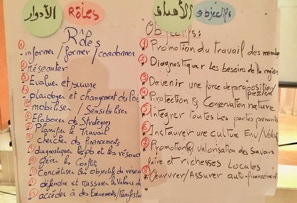 الأدوار Rôles
Rôles
informer / former / coordonner
Réseauter
Evaluer et suivre
plaidoyer et changement du
mobiliser / Sensibiliser
Elaborer de Stratégies
Planifier le Travail
chercher du financement
diagnostiquer
Gérer le Conflit
les objectifs de
défendre et
accéder à des
الأهداف objectifs
Objectifs
Promotion du Travail des membres
Diagnostiquer les besoins de la région
Devenir une force de proposition / pression
Protection & Conservation nature
Intégrer Toutes les parties prenantes
Instaurer une culture Env/
Promotion/valorisation des Savoirs
faire et richesses Locales
/Assurer auto-finance